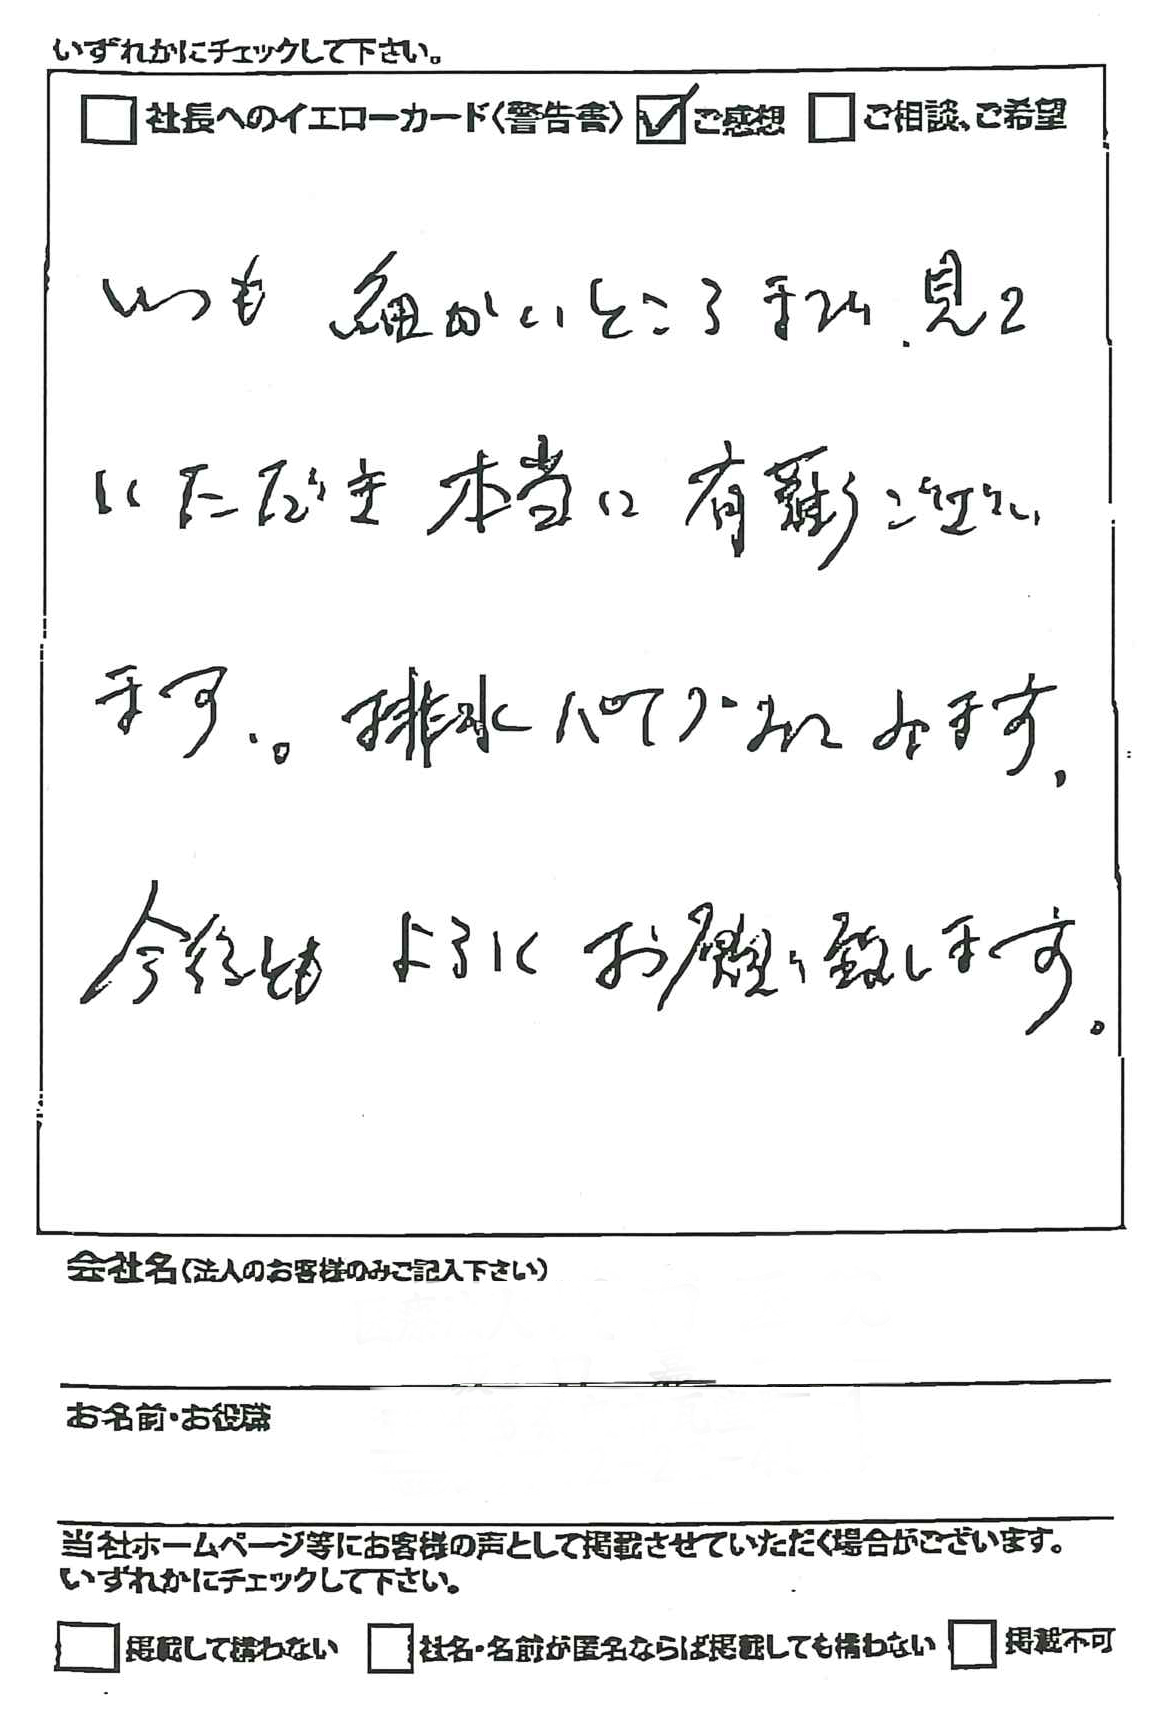 いずれかにチェックして下さい。
社長へのイエローカード〈警告書〉 ご感想 ご相談、ご希望
いつも 細かいところまで、見て
いただき 本当に 有難うござい
ます。。排水 みます、
今後とも よろしく お願い致します。
会社名(法人のお客様のみご記入下さい)
お名前・お役職
当社ホームページ等にお客様の声として掲載させていただく場合がございます。
いずれかにチェックして下さい。
掲載して構わない 社名・名前が匿名ならば掲載しても構わない 掲載不可